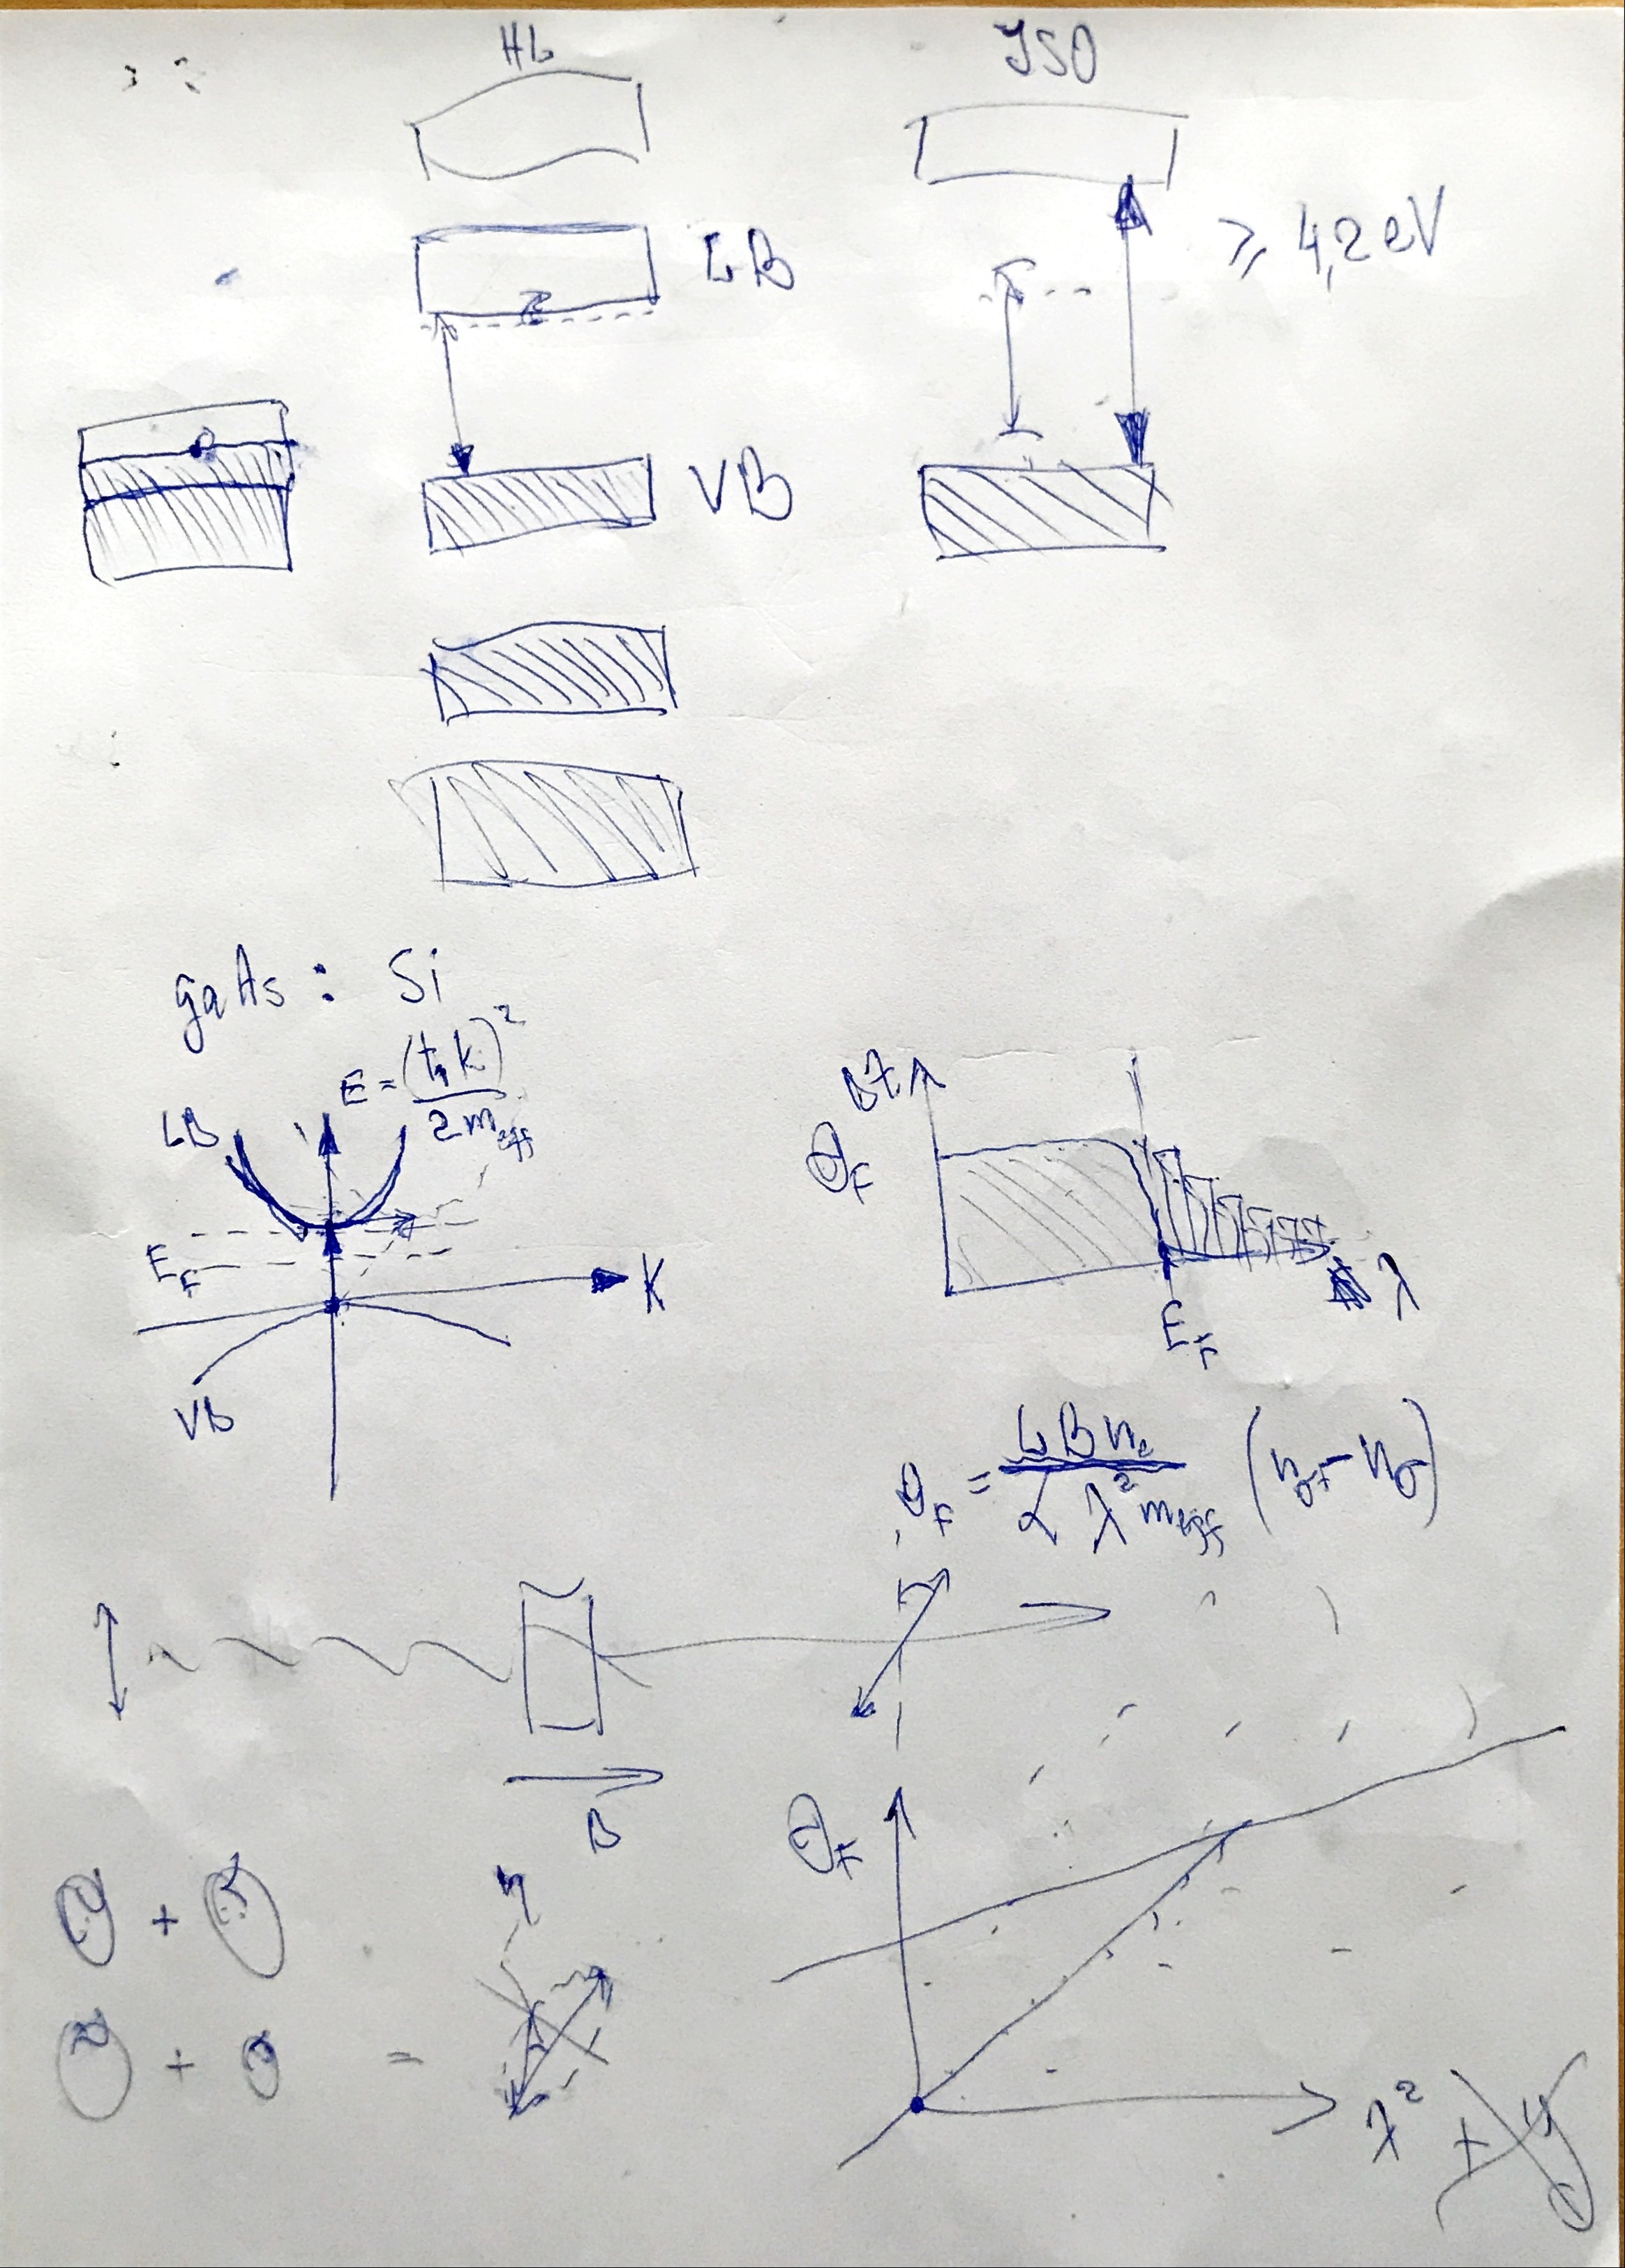 HL
ISO
LB
≥ 4,2 eV
VB
GaAs : Si
E = (ħk)² / 2 m_eff
LB
E_F
K
VB
θ_F
λ
E_F
θ_F = L B n_e / λ² m_eff (n_σ+ - n_σ-)
B
θ_F
+
+ =
λ² +